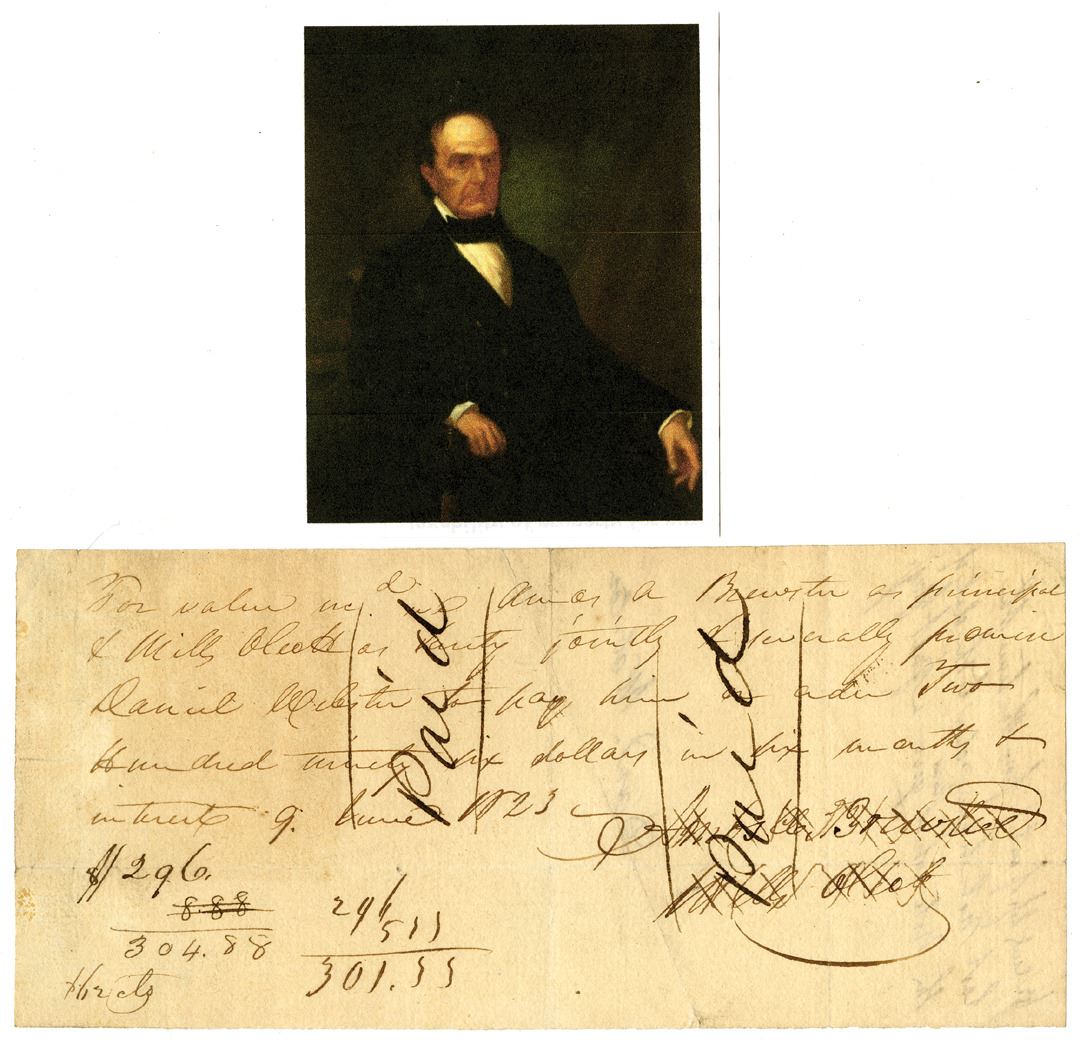 For value rec.d we Amos A Brewster as principal
& Mills Olcott as surety jointly & severally promise
Daniel Webster to pay him or order Two
Hundred ninety six dollars in six months &
interest 9. June 1823
Amos A Brewster
Mills Olcott
Paid
Paid
$296.
8.88
304.88
296
5 55
301.55